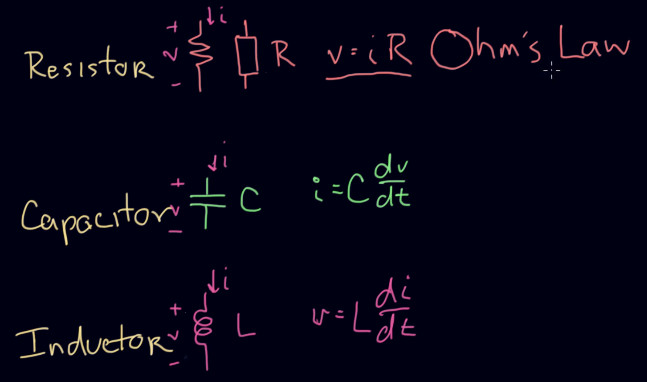 Resistor + v - i R v = iR Ohm's Law
Capacitor + v - i C i = C dv/dt
Inductor + v - i L v = L di/dt